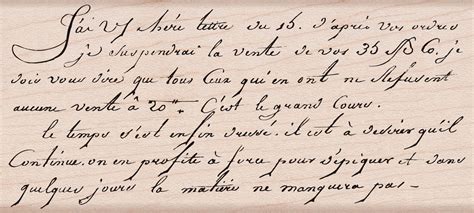 J'ai V/ chére lettre du 15. d'aprés vos ordres
je suspendrai la vente de vos 35 Co, je
dois vous dire que tous Ceux qui en ont ne Refusent
aucune vente à 20" C'est le grand Cours.
le temps s'est enfin dressé. il est à desirer qu'il
Continue. on en profite à force pour dépiquer et dans
quelques jours la matiére ne manquera pas -